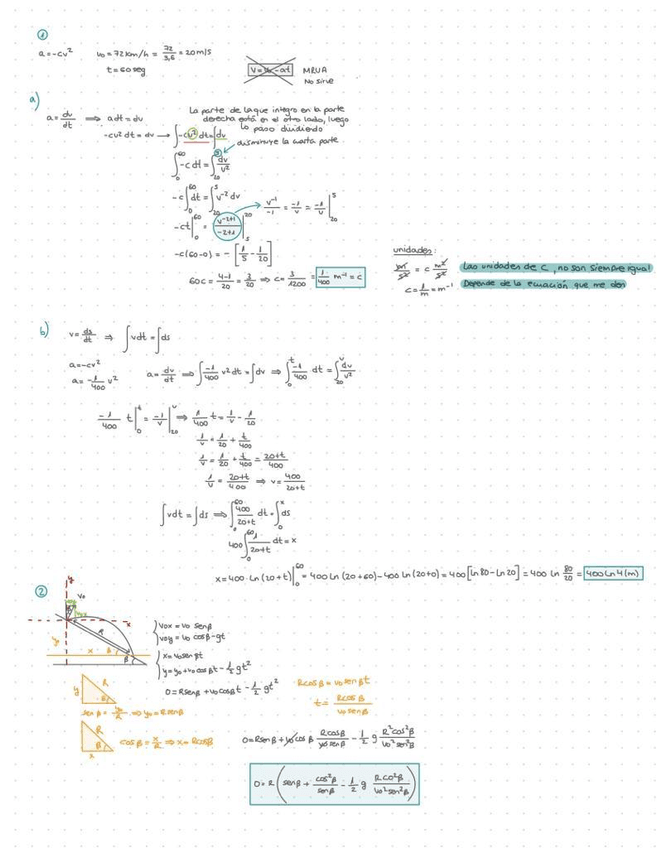 ①
a=-cv²   v₀ = 72 km/h = 72/3,6 = 20 m/s
t = 60 seg
V=V₀-at   MRUA
No sirve
a)
a = dv/dt ⟹ adt = dv
La parte de la que integro en la parte
derecha está en el otro lado, luego
lo paso dividiendo
-cv² dt = dv → ∫-cv² dt = ∫dv
disminuye la cuarta parte
∫₀⁶⁰ -c dt = ∫₂₀⁵ dv/v²
-c ∫₀⁶⁰ dt = ∫₂₀⁵ v⁻² dv   v⁻¹/-1 = -1/v = -1/v |₂₀⁵
-ct |₀⁶⁰ = v⁻²⁺¹/-2+1 |₅²⁰
-c(60-0) = -[1/5 - 1/20]
60c = 4-1/20 = 3/20 ⟹ c = 3/1200 = 1/400 m⁻¹ = c
unidades:
m/s² = c m²/s²
c = 1/m = m⁻¹
Las unidades de C, no son siempre igual
Depende de la ecuación que me den
b)
v = ds/dt ⟹ ∫vdt = ∫ds
a=-cv²
a = -1/400 v²
a = dv/dt ⟹ ∫-1/400 v² dt = ∫dv ⟹ ∫₀ᵗ -1/400 dt = ∫₂₀ᵛ dv/v²
-1/400 t |₀ᵗ = -1/v |₂₀ᵛ ⟹ 1/400 t = 1/v - 1/20
1/v = 1/20 + t/400
1/v = 1/20 + t/400 = 20+t/400
1/v = 20+t/400 ⟹ v = 400/20+t
∫vdt = ∫ds ⟹ ∫₀⁶⁰ 400/20+t dt = ∫₀ˣ ds
400 ∫₀⁶⁰ 1/20+t dt = x
x = 400 · ln (20+t) |₀⁶⁰ = 400 ln (20+60) - 400 ln (20+0) = 400 [ln 80 - ln 20] = 400 ln 80/20 = 400 ln 4 (m)
②
y
v₀
x
R
y₀
x
β
β
v₀x = v₀ senβ
v₀y = v₀ cosβ - gt
x = v₀senβt
y = y₀ + v₀ cosβt - 1/2 gt²
0 = Rsenβ + v₀cosβt - 1/2 gt²
Rcosβ = v₀ senβt
t = Rcosβ/v₀ senβ
y
R
β
sen β = y₀/R ⟹ y₀ = Rsenβ
R
β
x
cosβ = x/R ⟹ x = Rcosβ
0 = Rsenβ + v₀cosβ Rcosβ/v₀senβ - 1/2 g R²cos²β/v₀²sen²β
0 = R (senβ + cos²β/senβ - 1/2 g RCO²β/v₀²sen²β)